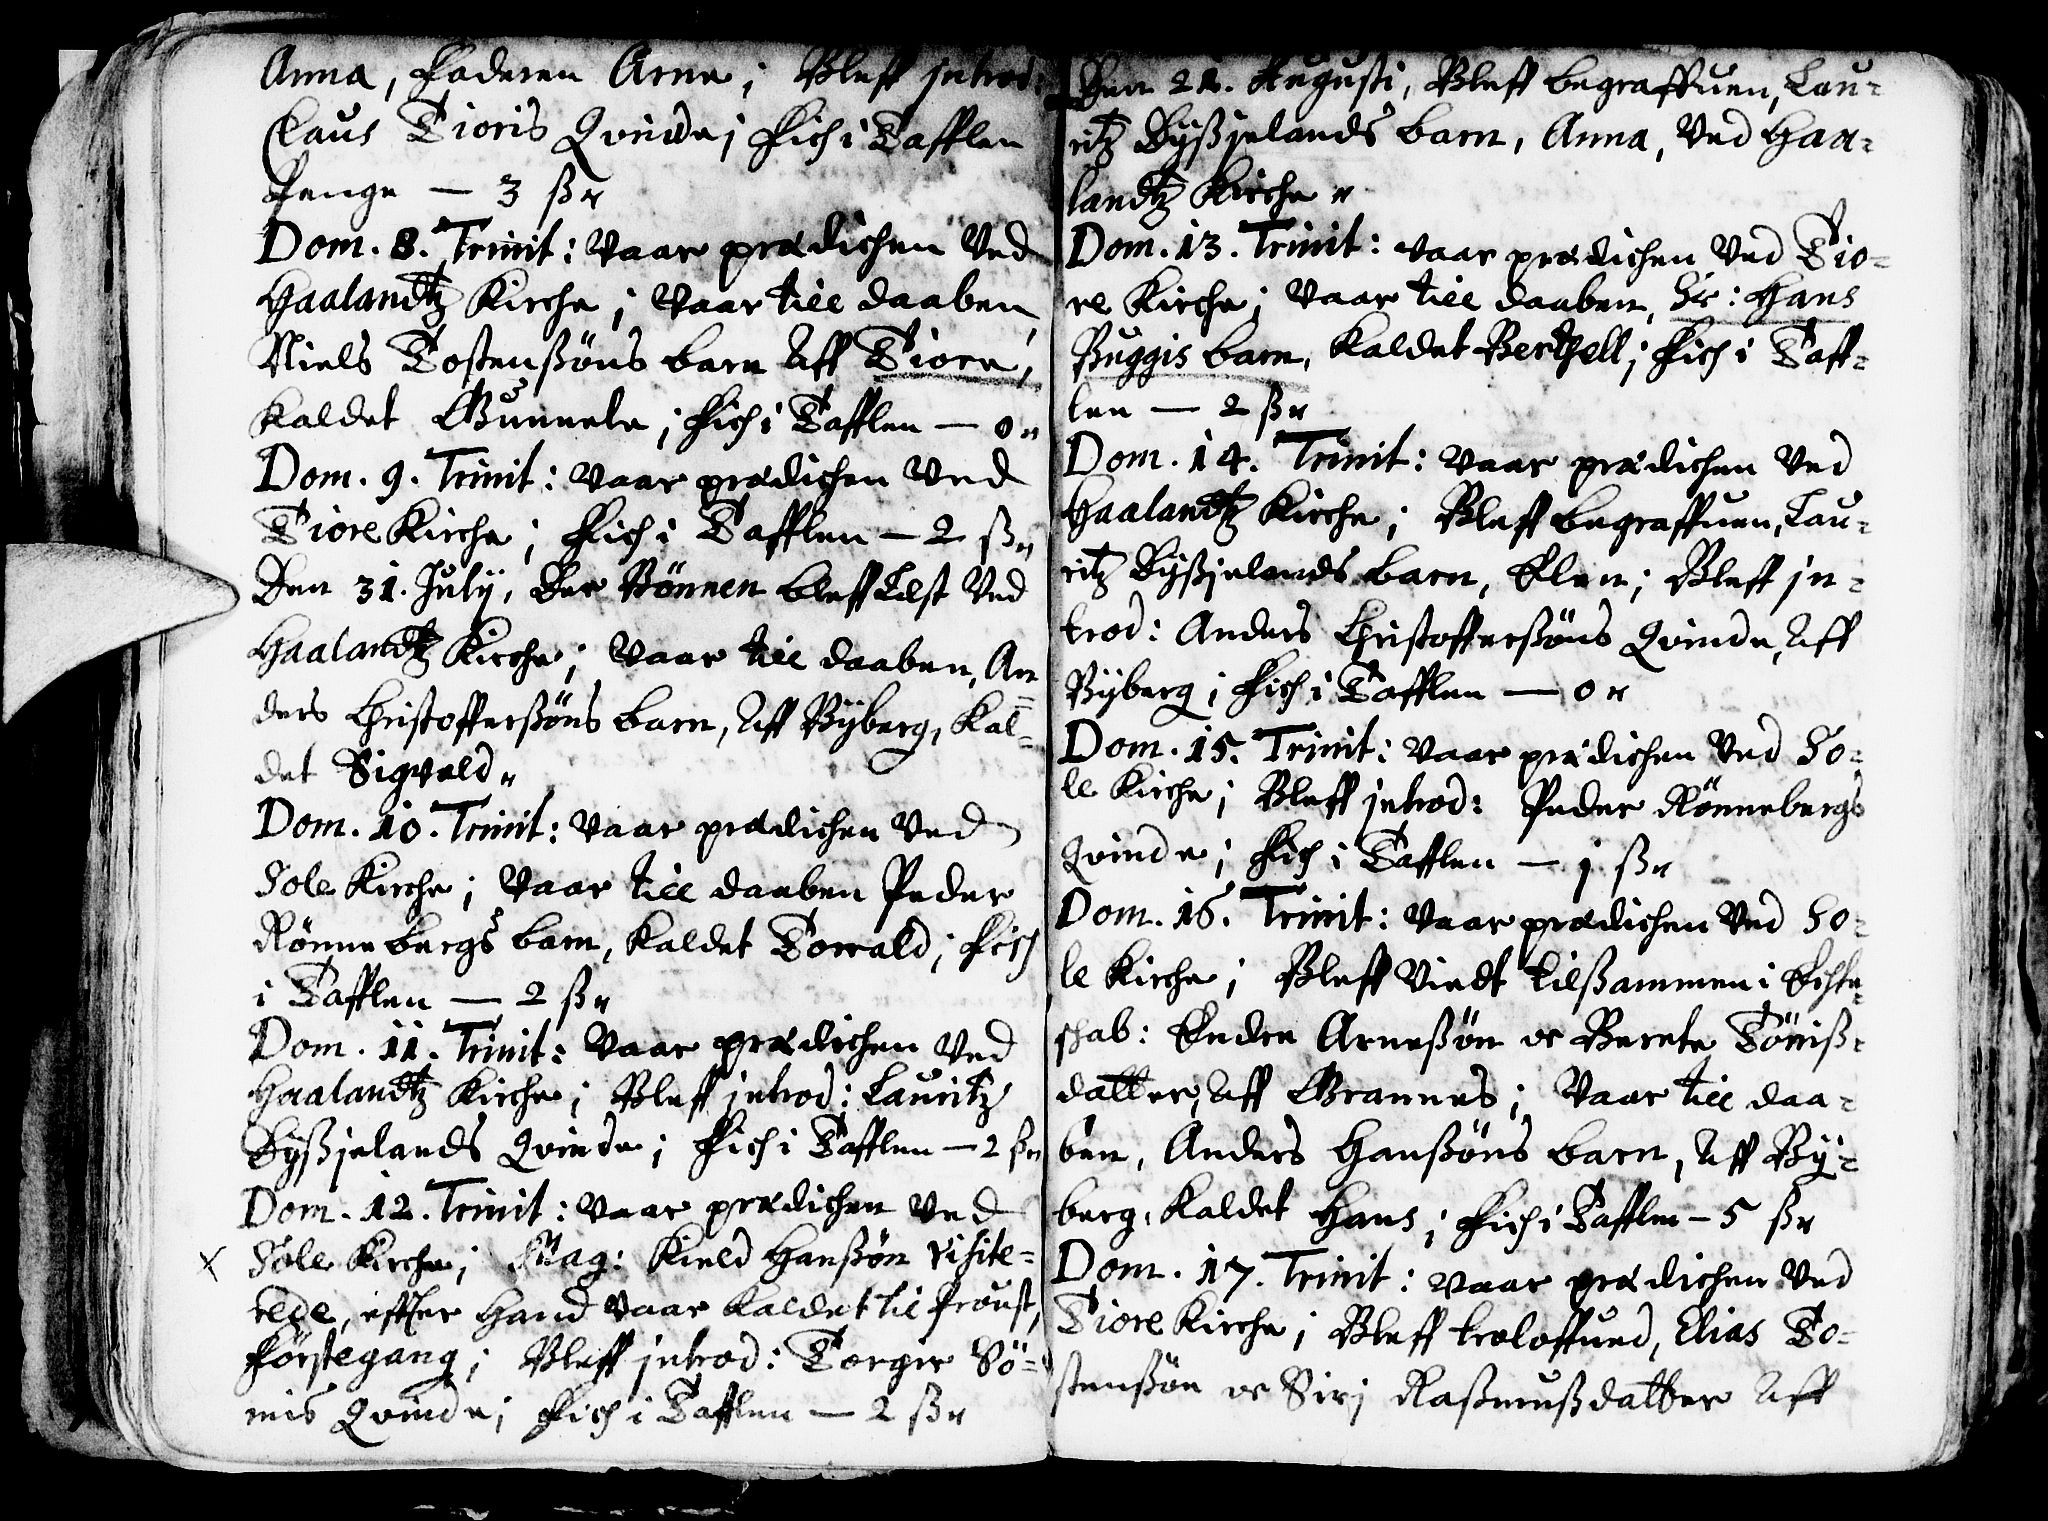 Anna, Faderen Arne; Bleff introd:
Claus Tioris Qvinde; Fich i Tafflen
Penge — 3 ß
Dom. 8. Trinit: Vaar prædichen Ved
Haalandtz Kirche; Vaar till daaben,
Niels Tostensßöns barn Aff Tiora,
Kaldet Gunnele; Fich i Tafflen — 0
Dom. 9. Trinit: Vaar prædichen Ved
Tiore Kirche; Fich i Tafflen — 2 ß
Den 31. Julij, Der Bönnen bleff Læst Ved
Haalandtz Kirche; Vaar till daaben, An=
ders Christofferßöns barn, Aff Byberg, Kal=
det Sigvald
Dom. 10. Trinit: Vaar prædichen Ved
Sole Kirche; Vaar till daaben Peder
Rönnebergs barn, Kaldet Torrald; Fich
i Tafflen — 2 ß
Dom. 11. Trinit: Vaar prædichen Ved
Haalandtz Kirche; Bleff introd: Lauritz
Byßjelands Qvinde; Fich i Tafflen — 2 ß
Dom. 12. Trinit: Vaar prædichen Ved
x Sole Kirche; Mag: Kield Hanßön Visite=
rede, effter Hand Vaar Kaldet til Proust,
Förstegang; Bleff introd: Torger Sö=
mis Qvinde; Fich i Tafflen — 2 ß
Den 21. Augusti, Bleff begraffuen, Lau=
ritz Byßjelands barn, Anna, Ved Haa=
landtz Kirche
Dom. 13. Trinit: Vaar prædichen Ved Tio=
re Kirche; Vaar till daaben, Hr: Hans
Buggis barn, Kaldet Berthell; Fich i Taff=
len — 2 ß
Dom. 14. Trinit: Vaar prædichen Ved
Haalandtz Kirche; Bleff begraffuen, Lau=
ritz Byßjelands barn, Elen; Bleff in=
trod: Anders Christofferßöns Qvinde, Aff
Byberg; Fich i Tafflen — 0
Dom. 15. Trinit: Vaar prædichen Ved So=
le Kirche; Bleff introd: Peder Rönnebergs
Qvinde; Fich i Tafflen — 1 ß
Dom. 16. Trinit: Vaar prædichen Ved So=
le Kirche; Bleff Viedt tilßammen i Echte=
schab: Endre Arneßön oc Berete Töniß=
datter, Aff Grannes; Vaar till daa=
ben, Anders Hanßöns barn, Aff By=
berg, Kaldet Hans; Fich i Tafflen — 5 ß
Dom. 17. Trinit: Vaar prædichen Ved
Tiore Kirche; Bleff troloffued, Elias To=
stenßön oc Siri Raßmußdatter Aff